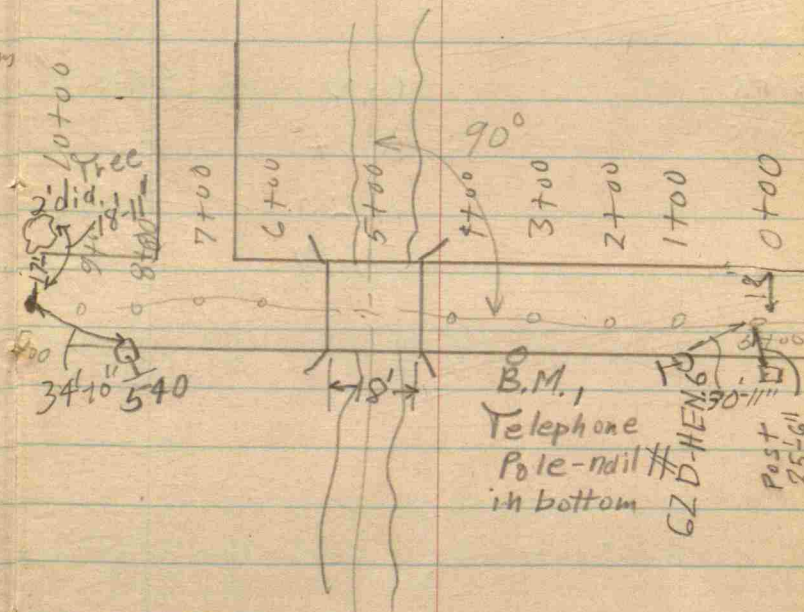 10+00
Tree
2' dia.
18'-11"
12"
9+00
8+00
7+00
6+00
5+00
90°
4+00
3+00
2+00
1+00
0+00
18'
34'10"
540
18'
B.M.,
Telephone
Pole-nail #
in bottom
62 D-HEN.6
30'-11"
Post
25'-6"